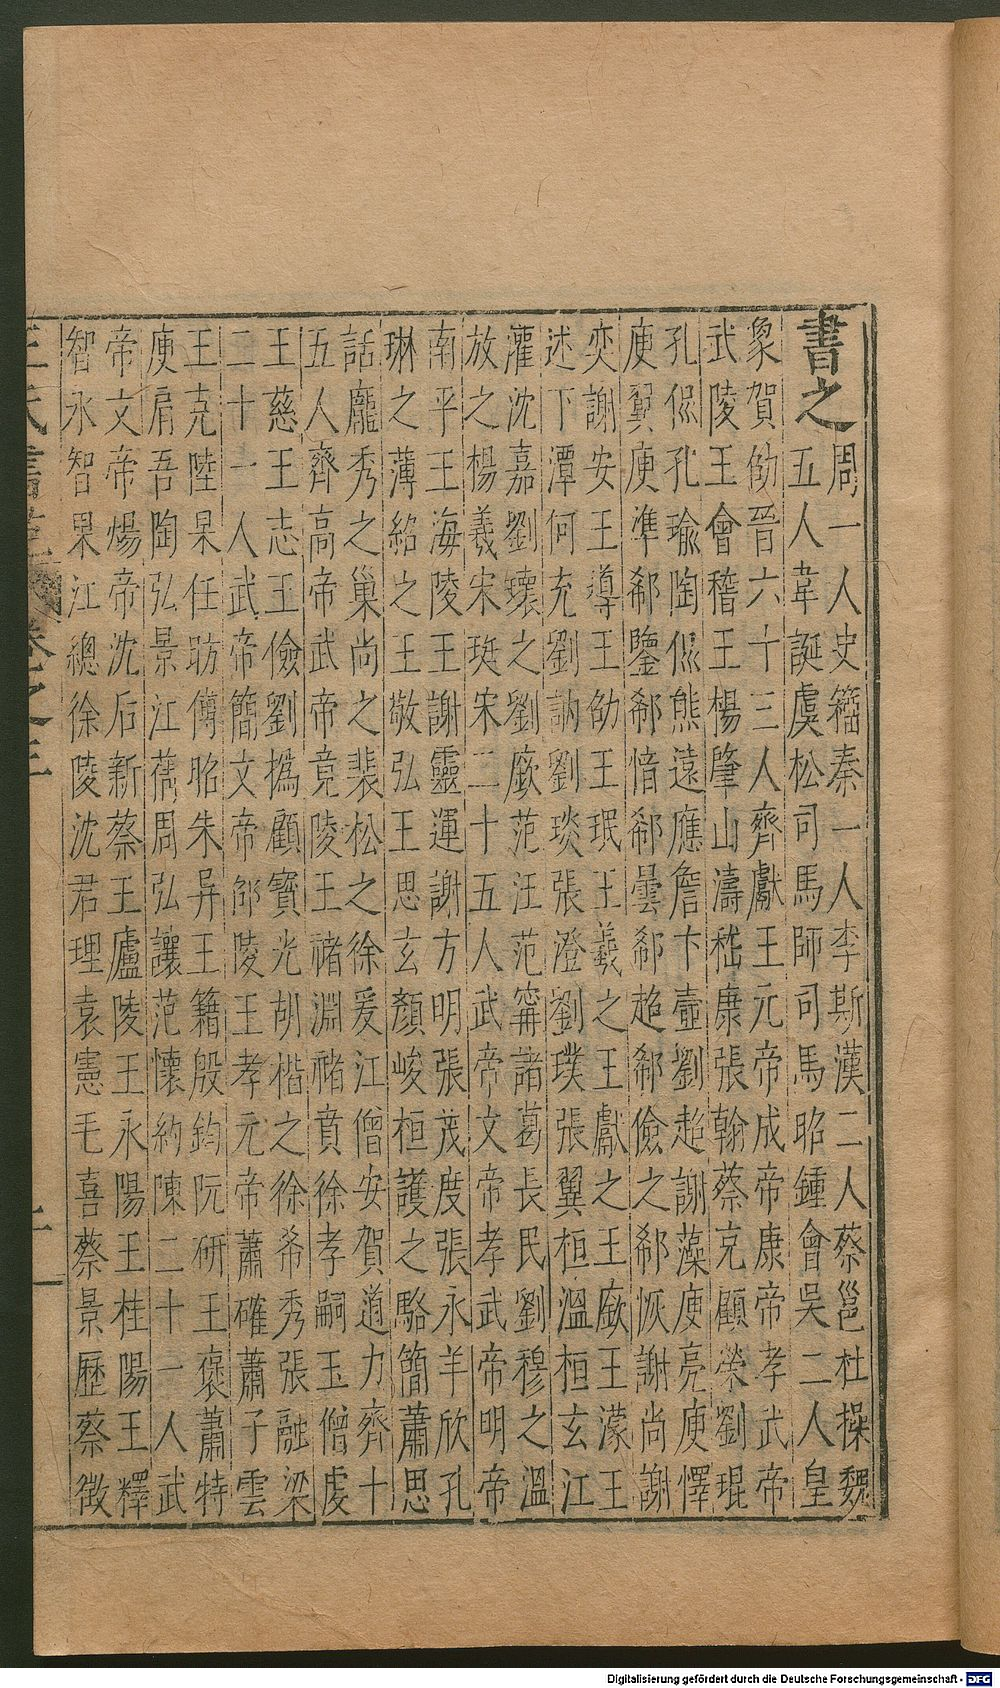 書之
周一人史籀秦一人李斯漢二人蔡邕杜操魏
五人韋誕虞松司馬師司馬昭鍾會吳二人皇
象賀劭晉六十三人齊獻王元帝成帝康帝孝武帝
武陵王會稽王楊肇山濤嵇康張翰蔡克顧榮劉琨
孔侃孔瑜陶侃熊遠應詹卞壼劉超謝藻庾亮庾懌
庾翼庾準郗鑒郗愔郗曇郗超郗儉之郗恢謝尚謝
奕謝安王導王劭王珉王羲之王獻之王廞王濛王
述下潭何充劉訥劉琰張澄劉璞張翼桓溫桓玄江
灌沈嘉劉瓌之劉廞范汪范甯諸葛長民劉穆之溫
放之楊羲宋珽宋二十五人武帝文帝孝武帝明帝
南平王海陵王謝靈運謝方明張茂度張永羊欣孔
琳之薄紹之王敬弘王思玄顏峻桓護之駱簡蕭思
話龐秀之巢尚之裴松之徐爰江僧安賀道力齊十
五人齊高帝武帝竟陵王褚淵褚賁徐孝嗣玉僧虔
王慈王志王儉劉撝顧寶光胡楷之徐希秀張融梁
二十一人武帝簡文帝邵陵王孝元帝蕭確蕭子雲
王克陸杲任昉傅昭朱异王籍殷鈞阮研王褒蕭特
庾肩吾陶弘景江蒨周弘讓范懷約陳二十一人武
帝文帝煬帝沈后新蔡王廬陵王永陽王桂陽王釋
智永智果江總徐陵沈君理袁憲毛喜蔡景歷蔡徵
王氏書苑 卷之三
Digitalisierung gefördert durch die Deutsche Forschungsgemeinschaft - DFG